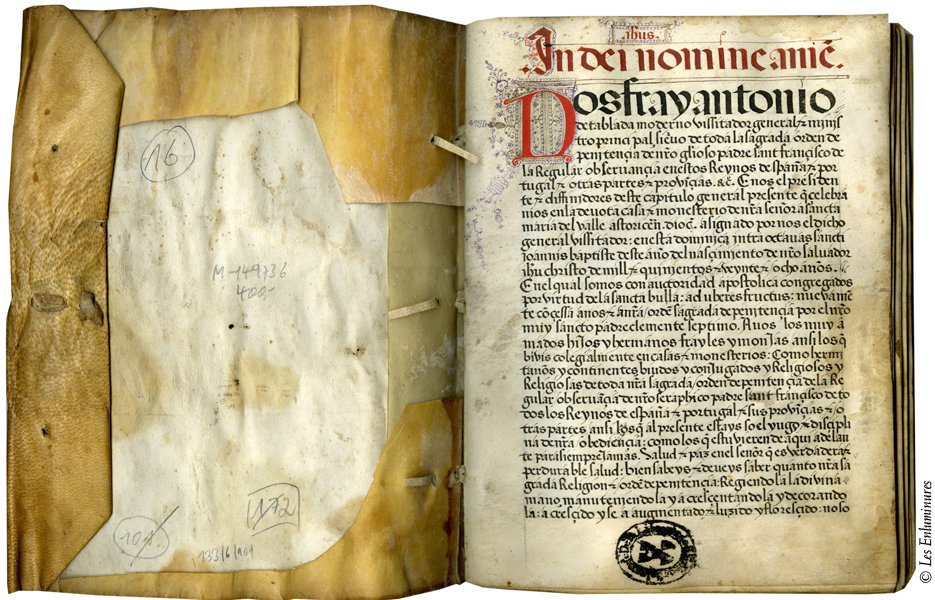 16
M-149736
400.-
172
101
133/6/101
ihus.
.In dei nomine amē.
Nos fray antonio
de tablada moderno vissitador general ⁊ minis
tro principal, siervo de toda la sagrada orden de
penitençia de nr̄o glīoso padre sant françisco de
la Regular observançia en estos Reynos de spaña ⁊ por
tugal ⁊ otras partes ⁊ proviçias. ⁊c̄. E nos el presiden
te ⁊ diffinidores deste capitulo general presente q̄ celebra
mos en la devota casa ⁊ monesterio de nr̄a señora sancta
maria del valle astoricen̄. dioc̄. asignado por nos el dicho
general vissitador: en esta dominica intra octavas sancti
Joannis baptiste deste año del nasçimento de nr̄o salvador
ihu christo de mill ⁊ quinientos ⁊ veynte ⁊ ocho años.
En el qual somos con auctoridad apostolica congregados
por virtud de la sancta bulla: ad uberes fructus: nuevamē
te cōçessa a nos ⁊ a nr̄a ordē sagrada de penitençia por el nr̄o
muy sancto padre clemente septimo. A vos los muy a
mados hijos y hermanos frayles y monjas ansi los q̄
bivis colegialmente en casas ⁊ monesterios: Como hermi
tanos y continentes biudos y conjugados y Religiosos y
Religiosas de toda nr̄a sagrada orden de penitençia de la Re
gular observāçia de nr̄o seraphico padre sant francisco de to
dos los Reynos de españa ⁊ portugal ⁊ sus proviçias ⁊ o
tras partes ansi los q̄ al presente estays so el yugo ⁊ disçipli
na de nr̄a obediençia: como los q̄ estuvieren de aqui adelan
te para siempre jamas. Salud ⁊ paz en el señor q̄ es verdadera ⁊
perdurable salud: bien sabeys ⁊ deveys saber quanto nr̄a sa
grada Religion ⁊ ordē de penitençia: Regiendo la la divina
mano, manuteniendo la y acresçentando la y decorando
la: a cresçido y se a augmentado ⁊ luzido y floresçido: no so
© Les Enluminures